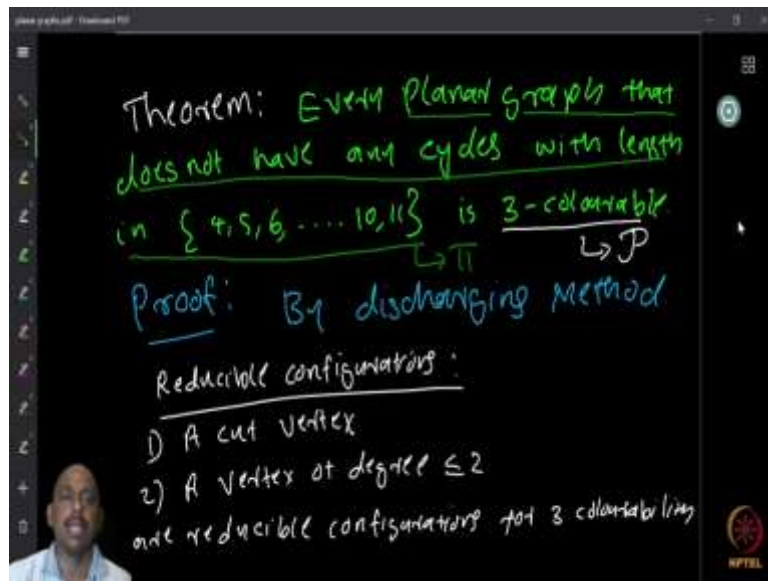 Theorem: Every planar graph that
does not have any cycles with length
in { 4, 5, 6, .... 10, 11} is 3-colourable.
↳ π ↳ P
Proof: By discharging Method
Reducible configurations:
1) A cut vertex
2) A vertex of degree ≤ 2
are reducible configurations for 3 colourability
NPTEL